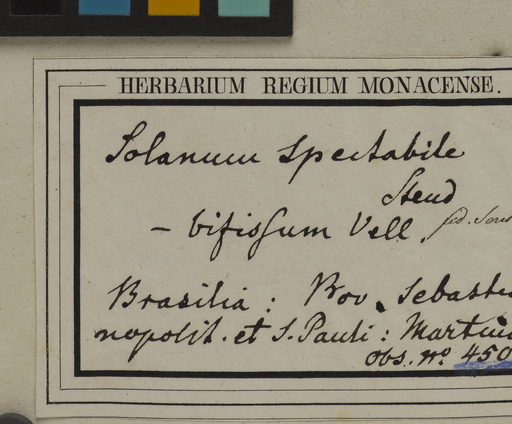 HERBARIUM REGIUM MONACENSE.
Solanum spectabile
Steud
– bifissum Vell.
Brasilia: Prov. Sebastia
nopolit. et S. Pauli: Martius
Obs. nº 450